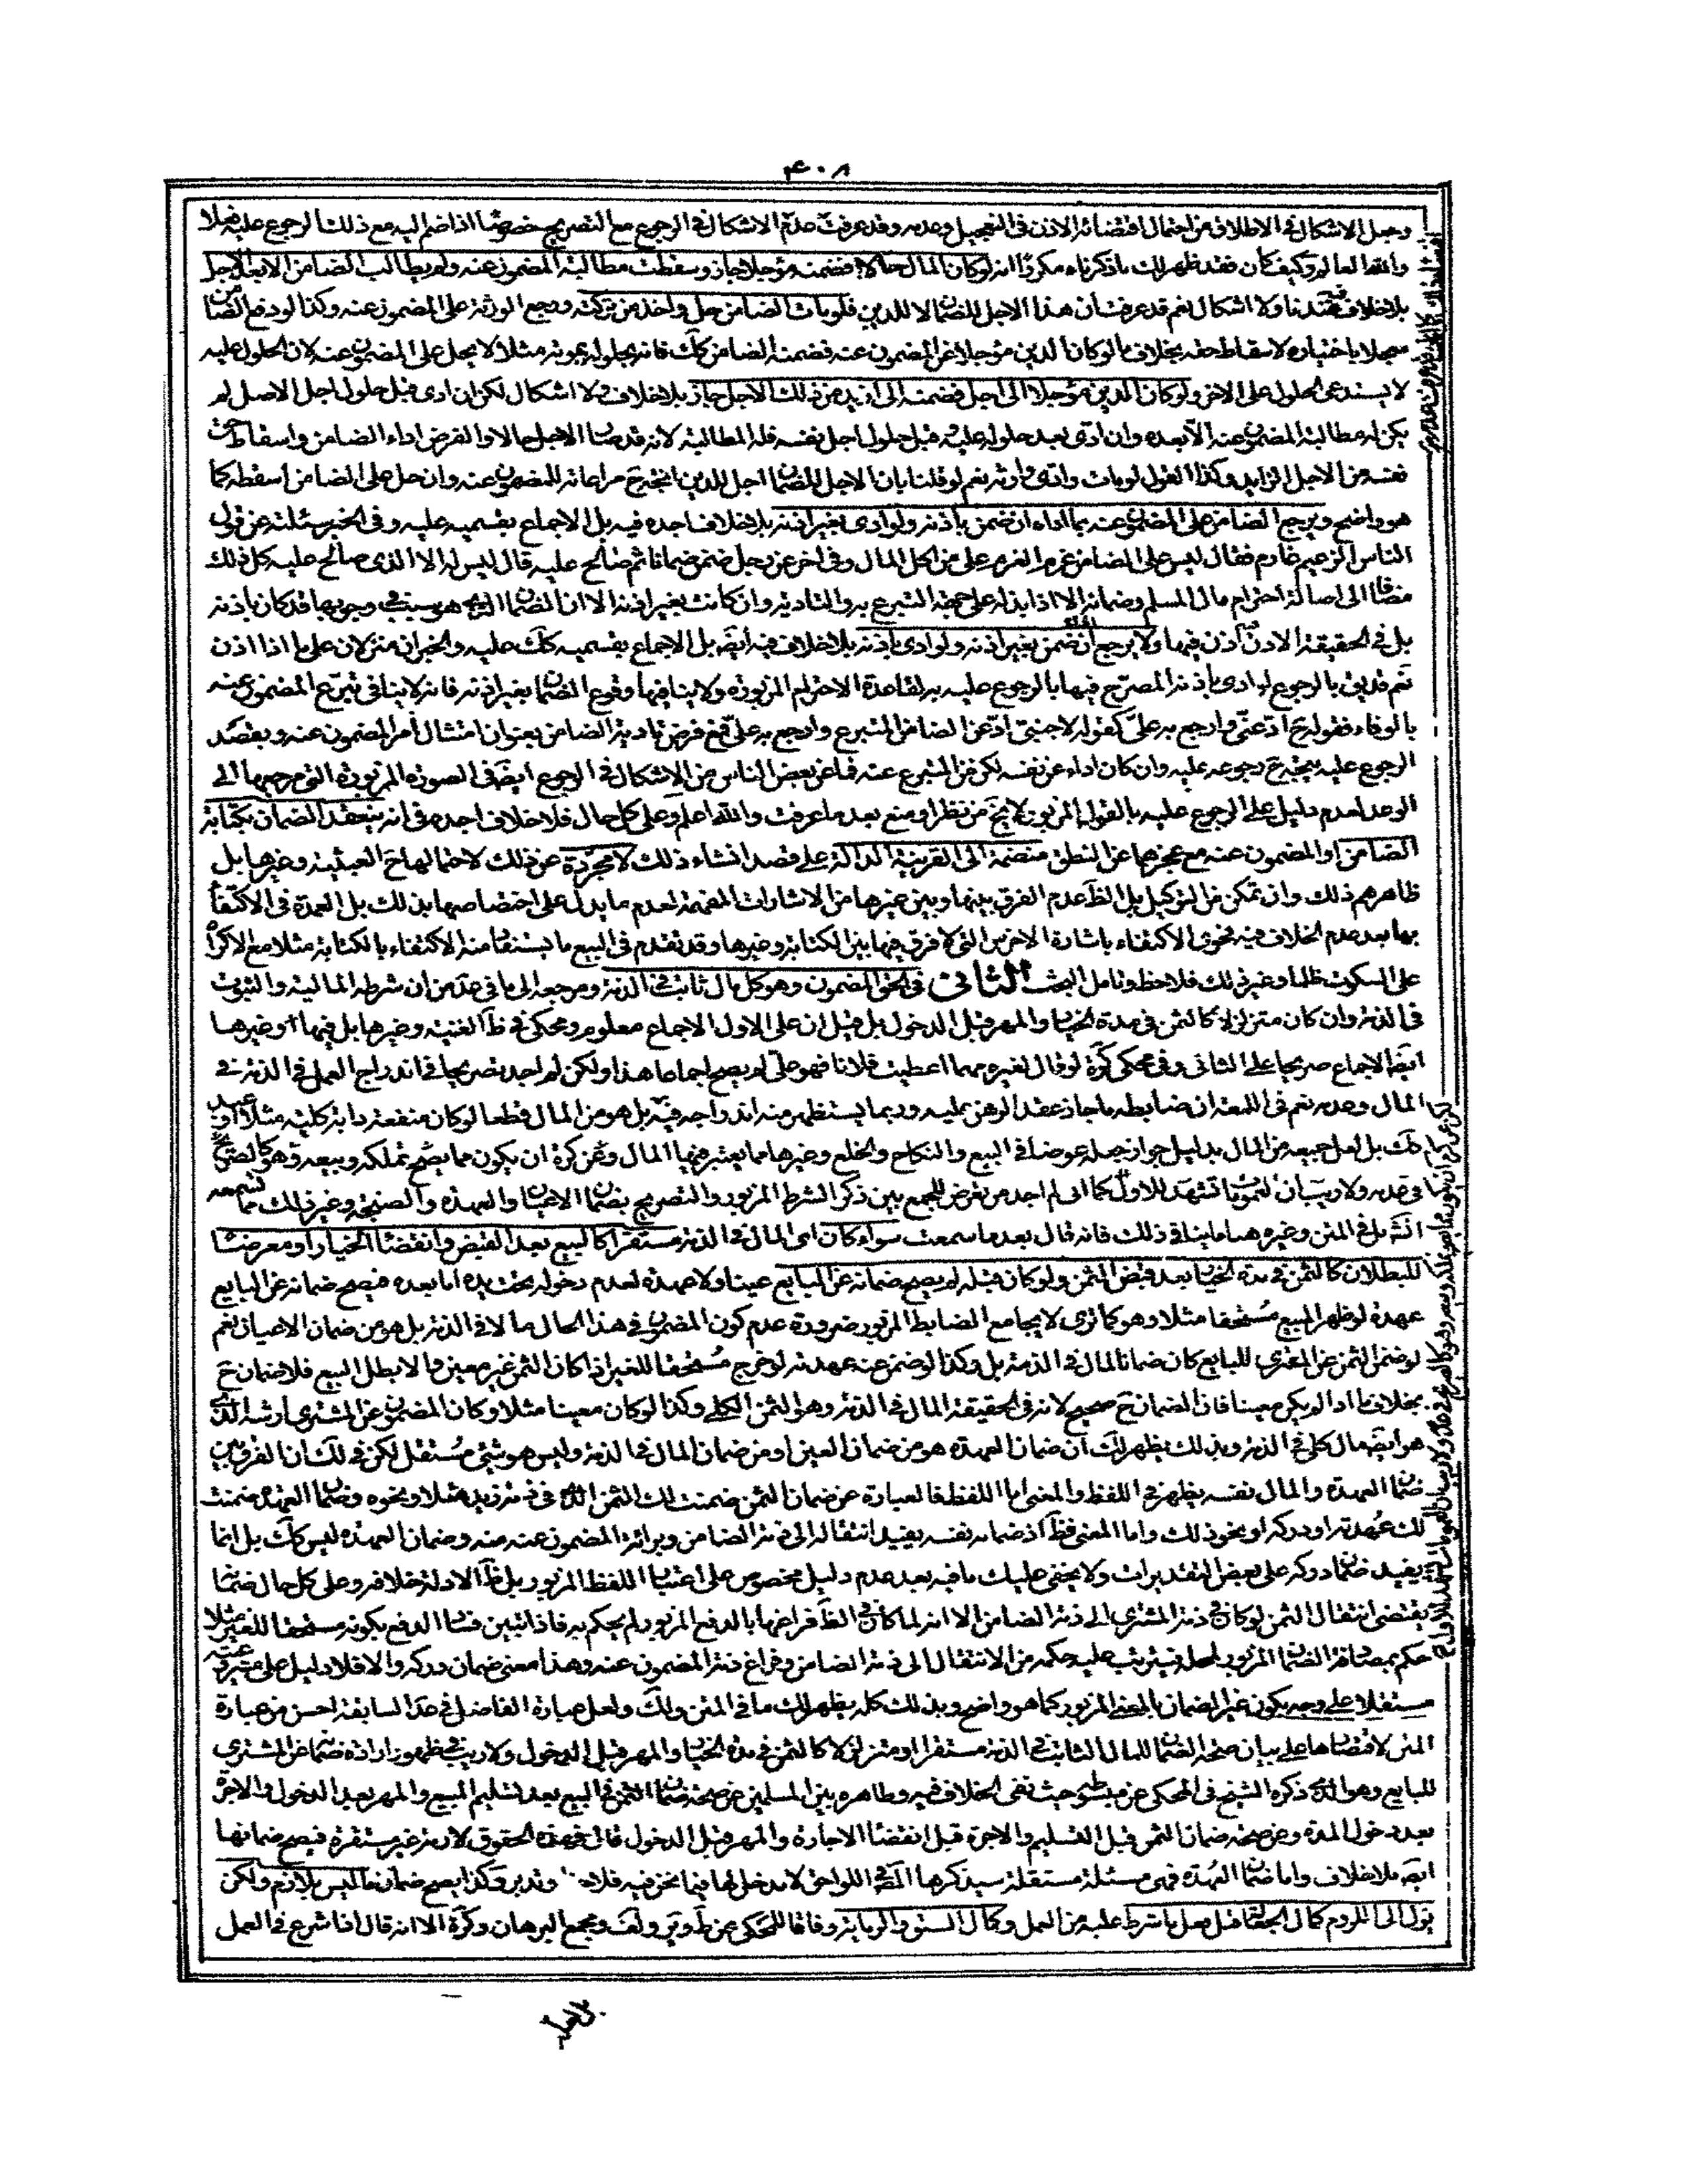 ۴۰۸
وجعل الاشكال في الاطلاق من احتمال اقتضائه الاذن في التعجيل وعدمه وقد عرفت عدم الاشكال في الرجوع مع التصريح خصوصا اذا ضم اليه مع ذلك الرجوع عليه
والله العالم وكيف كان فقد ظهر لك ما ذكرناه مكررا انه لو كان المال حالا فضمنه مؤجلا جاز وسقطت مطالبة المضمون عنه ولم يطالب الضامن الا بعد الاجل
بلا خلاف عندنا ولا اشكال نعم قد عرفت ان هذا الاجل للضمان لا للدين فلو مات الضامن حل واخذ من تركته ورجع الورثة على المضمون عنه وكذا لو دفع الضامن
معجلا باختياره لاسقاط حقه بخلاف ما لو كان الدين مؤجلا على المضمون عنه فضمنه الضامن كك فانه بحلوله بموته مثلا لا يحل على المضمون عنه لان الحلول عليه
لا يستدعي الحلول على الاخر ولو كان الدين مؤجلا الى اجل فضمنه الى ازيد من ذلك الاجل جاز بلا خلاف ولا اشكال لكن ان ادى قبل حلول اجل الاصل لم
يكن له مطالبة المضمون عنه الا بعده وان ادى بعد حلوله عليه قبل حلول اجل نفسه فله المطالبة لانه قد صار الاجل حالا والفرض اداء الضامن واسقاط حق
نفسه من الاجل الزايد وكذا القول لو مات وادى وارثه نعم لو قلنا بان الاجل للضمان اجل للدين اتجه ح مراعاته للمضمون عنه وان حل على الضامن او اسقطه كما
هو واضح ويرجع الضامن على المضمون عنه بما اداه ان ضمن باذنه ولو ادى بغير اذنه بلا خلاف اجده فيه بل الاجماع بقسميه عليه وفي الخبر سئلته عن قول
الناس الزعيم غارم فقال ليس على الضامن غرم الغرم على من اكل المال وفي اخر عن رجل ضمن ضمانا ثم صالح عليه قال ليس له الا الذي صالح عليه كل ذلك
مضافا الى اصالة احترام مال المسلم وضمانه الا اذا بذله على جهة التبرع به والتادية وان كانت بغير اذنه الا ان الضمان الذي هو سبب في وجوبها قد كان باذنه
بل في الحقيقة الاذن فيه اذن فيها ولا يرجع ان ضمن بغير اذنه ولو ادى باذنه بلا خلاف فيه ايضا بل الاجماع بقسميه كك عليه والخبران منزلان على ما اذا اذن
نعم قد يق بالرجوع لو ادى باذنه المصرح فيها بالرجوع عليه به لقاعدة الاحترام المزبورة ولا ينافيها وقوع الضمان بغير اذنه فانه لا ينافي تبرع المضمون عنه
بالوفاء فقوله ح اد عني وارجع به علي كقوله لاجنبي اد عن الضامن المتبرع وارجع به علي فمع فرض تادية الضامن بعنوان امتثال امر المضمون عنه وبقصد
الرجوع عليه يتجه ح رجوعه عليه وان كان اداء عن نفسه لكن من المتبرع عنه فما عن بعض الناس من الاشكال في الرجوع ايضا في الصورة المزبورة التي مرجعها الى
الوعد لعدم دليل على الرجوع عليه بالقول المزبور لا يخ من نظر او منع بعد ما عرفت والله اعلم وعلى كل حال فلا خلاف اجده في انه ينعقد الضمان بكتابة
الضامن او المضمون عنه مع عجزهما عن النطق منضمة الى القرينة الدالة على قصد انشاء ذلك لا مجردة عن ذلك لاحتمالها ح العبثية وغيرها بل
ظاهرهم ذلك وان تمكن من التوكيل بل الظ عدم الفرق بينها وبين غيرها من الاشارات المفهمة لعدم ما يدل على اختصاصها بذلك بل العمدة في الاكتفاء
بها بعد عدم الخلاف فيه فحوى الاكتفاء باشارة الاخرس التي لا فرق فيها بين الكتابة وغيرها وقد تقدم في البيع ما يستفاد منه الاكتفاء بالكتابة مثلا مع الاكراه
على السكوت ظلما وغير ذلك فلاحظ وتامل البحث الثاني في الحق المضمون وهو كل مال ثابت في الذمة ومرجعه الى ما في عد من ان شرطه المالية والثبوت
في الذمة وان كان متزلزلا كالثمن في مدة الخيار والمهر قبل الدخول بل قيل ان على الاول الاجماع معلوم ومحكي في ظ الغنية وغيرها بل فيها وغيرها
ايضا الاجماع صريحا على الثاني وفي محكي كرة لو قال لغيره مهما اعطيت فلانا فهو علي لم يصح اجماعا هذا ولكن لم اجد تصريحا في اندراج العمل في الذمة في
المال وعدمه نعم في اللمعة ان ضابطه ما جاز عقد الرهن عليه وربما يستظهر منه اندراجه فيه بل هو من المال قطعا لو كان منفعة دابة كلية مثلا او عبد
كك بل لعل جميعه من المال بدليل جواز جعله عوضا في البيع والنكاح والخلع وغيرها مما يعتبر فيها المال وعن كرة ان يكون مما يصح تملكه وبيعه وهو كالصريح
في عدمه ولا ريب ان العمومات تشهد للاول كما اني لم اجد من تعرض للجمع بين ذكر الشرط المزبور والتصريح بضمان الاعيان والعهدة والصنجة وغير ذلك مما تسمعه
انش بل في المتن وغيره هنا ما ينافي ذلك فانه قال بعد ما سمعت سواء كان اى المال في الذمة مستقرا كالبيع بعد القبض وانقضاء الخيار او معرضا
للبطلان كالثمن في مدة الخيار بعد قبض الثمن ولو كان قبله لم يصح ضمانه عن البايع عينا ولا عهدة لعدم دخوله تحت يده اما بعده فيصح ضمانه عن البايع
عهدة لو ظهر المبيع مستحقا مثلا وهو كما ترى لا يجامع الضابط المزبور ضرورة عدم كون المضمون في هذا الحال مالا في الذمة بل هو من ضمان الاعيان نعم
لو ضمن الثمن عن المشتري للبايع كان ضمانا لمال في الذمة بل وكذا لو ضمن عنه عهدته لو خرج مستحقا للغير اذا كان الثمن غير معين والا بطل البيع فلا ضمان ح
بخلاف ما اذا لم يكن معينا فان الضمان ح صحيح لانه في الحقيقة المال في الذمة وهو الثمن الكلي وكذا لو كان معينا مثلا وكان المضمون عن المشتري ارشه الذي
هو ايضا مال كلي في الذمة وبذلك يظهر لك ان ضمان العهدة هو من ضمان العين او من ضمان المال في الذمة وليس هو شئ مستقل لكن في لك ان الفرق بين
ضمان العهدة والمال نفسه يظهر في اللفظ والمعنى اما اللفظ فالعبارة عن ضمان الثمن ضمنت لك الثمن الذي في ذمة زيد مثلا ونحوه وضمان العهدة ضمنت
لك عهدته او دركه او نحو ذلك واما المعنى فظ اذ ضمانه نفسه يفيد انتقاله الى ذمة الضامن وبرائة المضمون عنه منه وضمان العهدة ليس كك بل انما
يفيد ضمان دركه على بعض التقديرات ولا يخفى عليك ما فيه بعد عدم دليل مخصوص على اعتبار اللفظ المزبور بل ظ الادلة خلافه وعلى كل حال ضمانا
يقتضي انتقال الثمن لو كان في ذمة المشتري الى ذمة الضامن الا انه لما كان في الظ فراغها بالدفع المزبور لم يحكم به فاذا تبين فساد الدفع بكونه مستحقا للغير مثلا
حكم بمصادفة الضمان المزبور لمحله فيترتب عليه حكمه من الانتقال الى ذمة الضامن وفراغ ذمة المضمون عنه وهذا معنى ضمان دركه والا فلا دليل على مشروعيته
مستقلا على وجه يكون غير الضمان بالمعنى المزبور كما هو واضح وبذلك كله يظهر لك ما في المتن ولك ولعل عبارة الفاضل في عد السابقة احسن من عبارة
المتن لاقتصارها على بيان صحة الضمان للمال الثابت في الذمة مستقرا او متزلزلا كالثمن في مدة الخيار والمهر قبل الدخول ولا ريب في ظهور ارادة ضمان عن المشتري
للبايع وهو الذي ذكره الشيخ في المحكي عن مبسوطه حيث نفى الخلاف فيه وظاهره بين المسلمين عن صحة ضمان الثمن في البيع بعد تسليم المبيع والمهر بعد الدخول والاجرة
بعد دخول المدة وعن صحة ضمان الثمن قبل التسليم والاجرة قبل انقضاء الاجارة والمهر قبل الدخول قال فهذه الحقوق لازمة غير مستقرة فيصح ضمانها
ايضا بلا خلاف واما ضمان العهدة فهي مسئلة مستقلة سيذكرها المص في اللواحق لا مدخل لها فيما نحن فيه فلاحظ وتدبر وكذا يصح ضمان ما ليس بلازم ولكن
يؤل الى اللزوم كمال الجعالة قبل فعل ما شرط عليه من العمل وكمال السبق والرماية وفاقا للمحكي عن ط وير ولف ومجمع البرهان وكرة الا انه قال اذا شرع في العمل